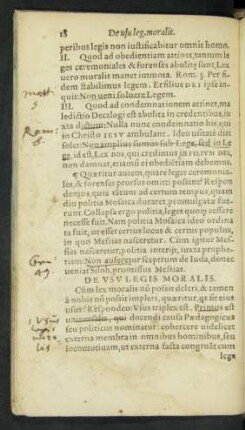 18 De usu leg. moralit.
peribus legis non iustificabitur omnis homo.
II. Quod ad obedientiam attinet, tametsi le
ges ceremoniales & forenses abolitę sunt, Lex
vero moralis manet immota. Rom. 3. Per fi-
dem stabilimus legem. Et filius DEI ipse in-
quit: Non veni solvere Legem.
III. Quod ad condemnationem attinet, ma
ledictio Decalogi est abolita in credentibus, iu
xta dictum: Nulla nunc condemnatio his, qui
in Christo IESV ambulant. Ideo usitate dici
solet: Non amplius sumus sub Lege, sed in Le
ge, id est, Lex nos, qui credimus in
non damnat, etiamsi
¶ Quæritur autem, quare leges ceremonia-
les, & forenses prorsus omitti possint? Respon
deo, quia tātum ad certum tempus, quam
diu politia Mosaica duraret, promulgatæ fue-
runt. Collapsa ergo politia, leges quoque cessare
necesse fuit. Nam politia Mosaica ideo ordina
ta fuit, ut esset certus locus & certus populus,
in quo Messias nasceretur. Cùm igitur Mes-
sias nasceretur, politia interijt, iuxta prophe-
tiam: Non auferetur sceptrum de Iuda, donec
veniat Siloh, promissus Messias.
DE VSV LEGIS MORALIS.
Cùm lex moralis nō possit deleri, & tamen
à nobis nō possit impleri, quæritur, quis sit eius
usus? Respondeo: Vsus triplex est. Primus est
qui docendi causa Pædagogicus
seu politicus nominatur: cohercere videlicet
externa membra in omnibus hominibus, siue
locomotiuam, ut externa facta congruāt cum
lege
Rom.
3.
Gen.
49.
Vsus
legis
mora
lis